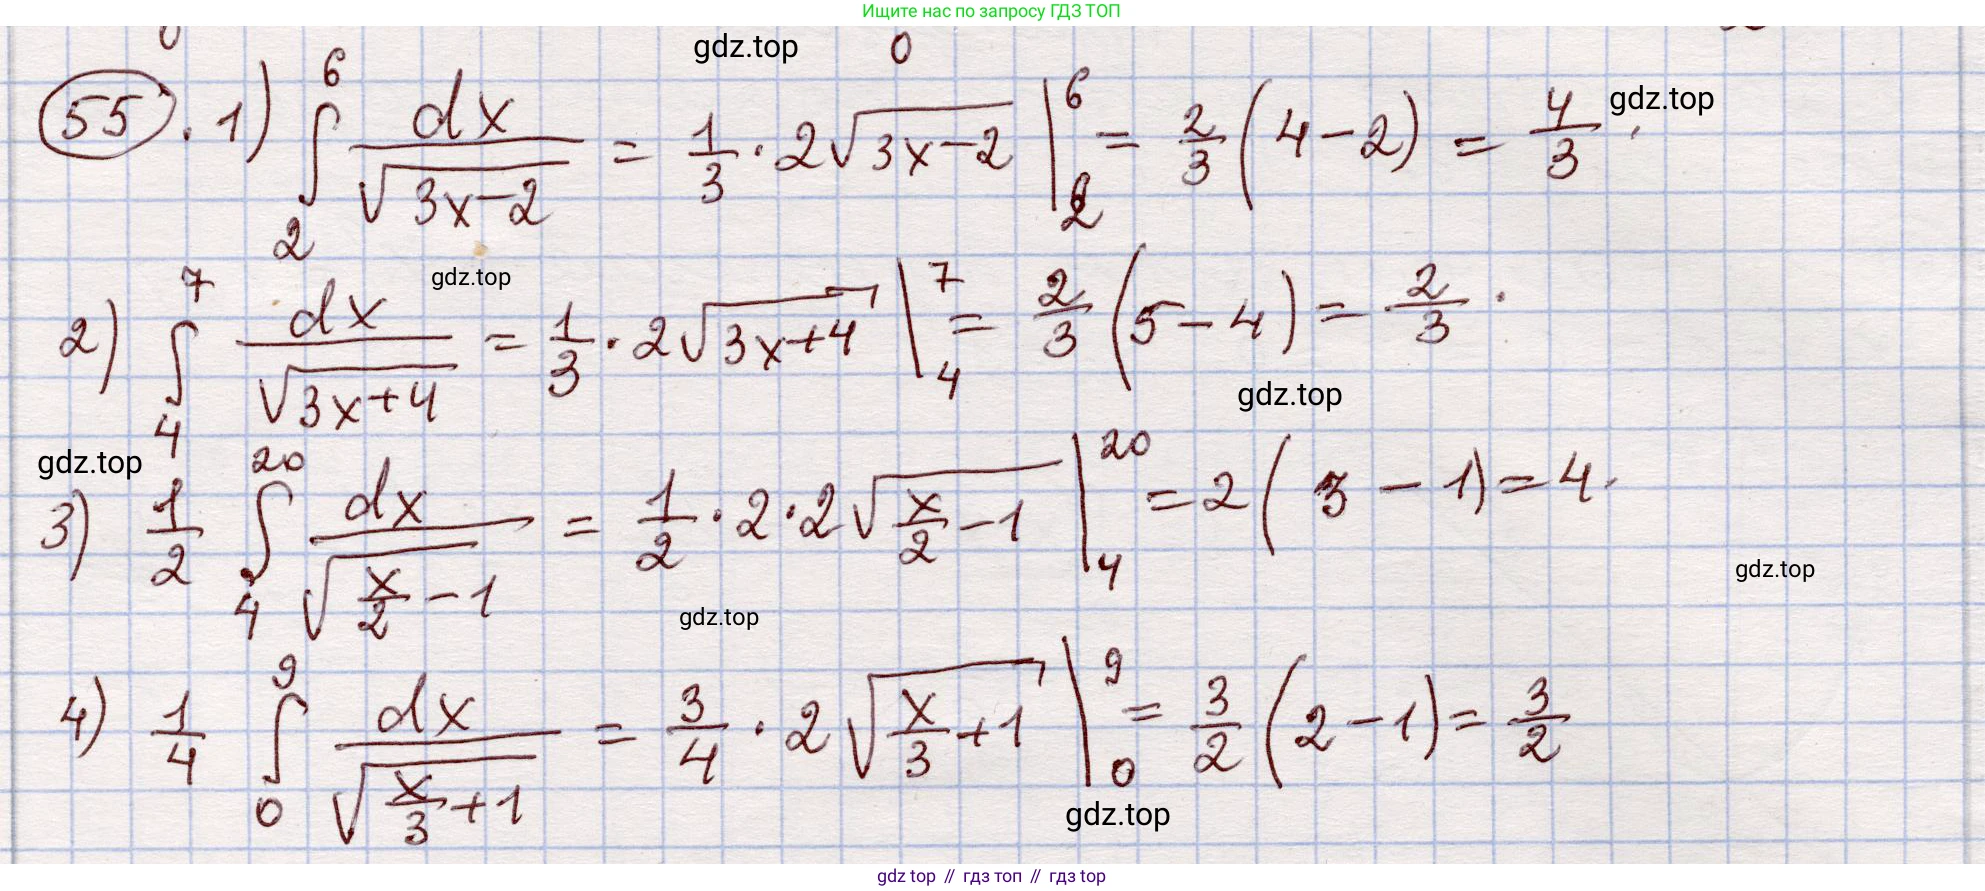 Ищите нас по запросу ГДЗ ТОП
gdz.top 0
55. 1) ∫₂⁶ dx/√(3x−2) = 1/3 · 2√(3x−2) |₂⁶ = 2/3 (4−2) = 4/3. gdz.top
gdz.top
2) ∫₄⁷ dx/√(3x+4) = 1/3 · 2√(3x+4) |₄⁷ = 2/3 (5−4) = 2/3.
gdz.top
gdz.top
3) 1/2 ∫₄²⁰ dx/√(x/2−1) = 1/2 · 2 · 2√(x/2−1) |₄²⁰ = 2(3−1) = 4.
gdz.top
gdz.top
4) 1/4 ∫₀⁹ dx/√(x/3+1) = 3/4 · 2√(x/3+1) |₀⁹ = 3/2 (2−1) = 3/2
gdz.top
gdz top // гдз топ // гдз top